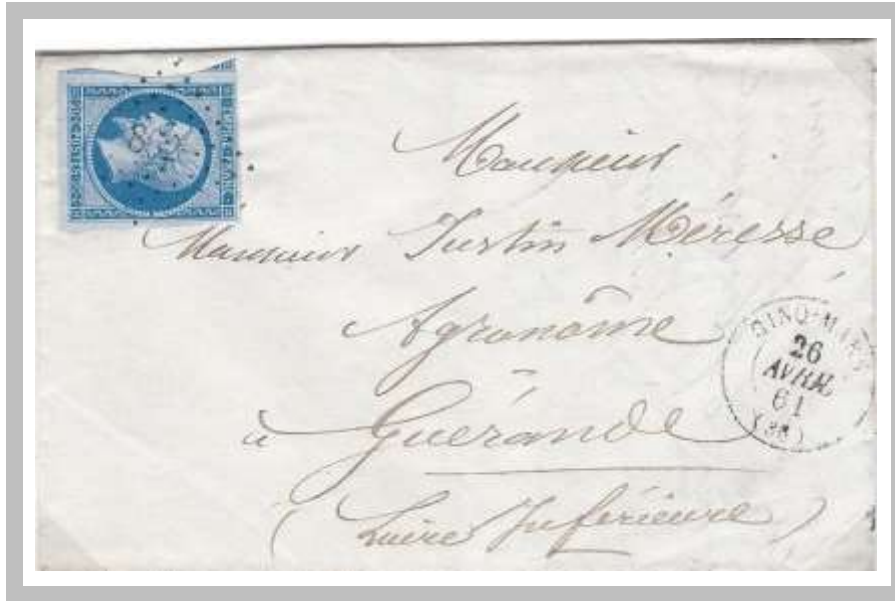 Monsieur
Monsieur Justin Méresse
Agronôme
à Guérande
(Loire Inférieure)
CINQ-MARS
26
AVRIL
61